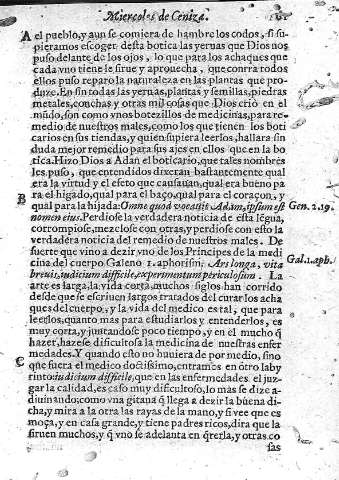 Miercoles de Ceniza.
A el pueblo, y aun se comiera de hambre los codos, si su
pieramos escoger desta botica las yeruas que Dios nos
puso delante de los ojos, lo que para los achaques que
cada vno tiene le sirue y aprouecha, que contra todos
ellos puso reparo la naturaleza en las plantas que pro
duze. En sin todas las yeruas, plantas y semillas, piedras
metales, conchas y otras mil cosas que Dios criò en el
mũdo, son como vnos botezillos de medicinas, para re-
medio de nuestros males, como los que tienen los boti
carios en sus tiendas, y quien supiera leerlos, hallara sin
duda mejor remedio para sus ajes en ellos que en la bo
tica. Hizo Dios a Adan el boticario, que tales nombres
les puso, que entendidos dixeran bastantemente qual
era la virtud y el efeto que causauan, qual era bueno pa
B ra el higado, qual para el baço, qual para el coraçon, y
qual para la hijada: Omne quod vocauit Adam, ipsum est Gen. 2.19.
nomen eius. Perdiose la verdadera noticia de esta lẽgua,
corrompiose, mezclose con otras, y perdiose con esto la
verdadera noticia del remedio de nuestros males. De
suerte que vino a dezir vno de los Principes de la medi
cina del cuerpo Galeno 1. aphorismi. Ars longa, vita Gal. 1. aph.
breuis, iudicium difficile, experimentum periculosum. La
arte es larga, la vida corta, muchos siglos han corrido
desde que se escriuen largos tratados del curar los acha
ques del cuerpo, y la vida del medico es tal, que para
leerlos, quanto mas para estudiarlos y entenderlos, es
muy corta, y juntandose poco tiempo, y en el mucho q̃
hazer, hazese dificultosa la medicina de nuestras enfer
medades. Y quando esto no huuiera de por medio, sino
C que fuera el medico doctissimo, entramos en otro laby
rinto: iudicium difficile, que en las enfermedades el juz-
gar la calidad, es caso muy dificultoso, lo mas se dize a-
diuinando; como vna gitana q̃ llega a dezir la buena di
cha, y mira a la otra las rayas de la mano, y si vee que es
moça, y en casa grande, y tiene padres ricos, dira que la
siruen muchos, y q̃ vno se adelanta en q̃rerla, y otras co
sas